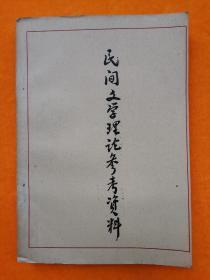 民间文学理论参考资料